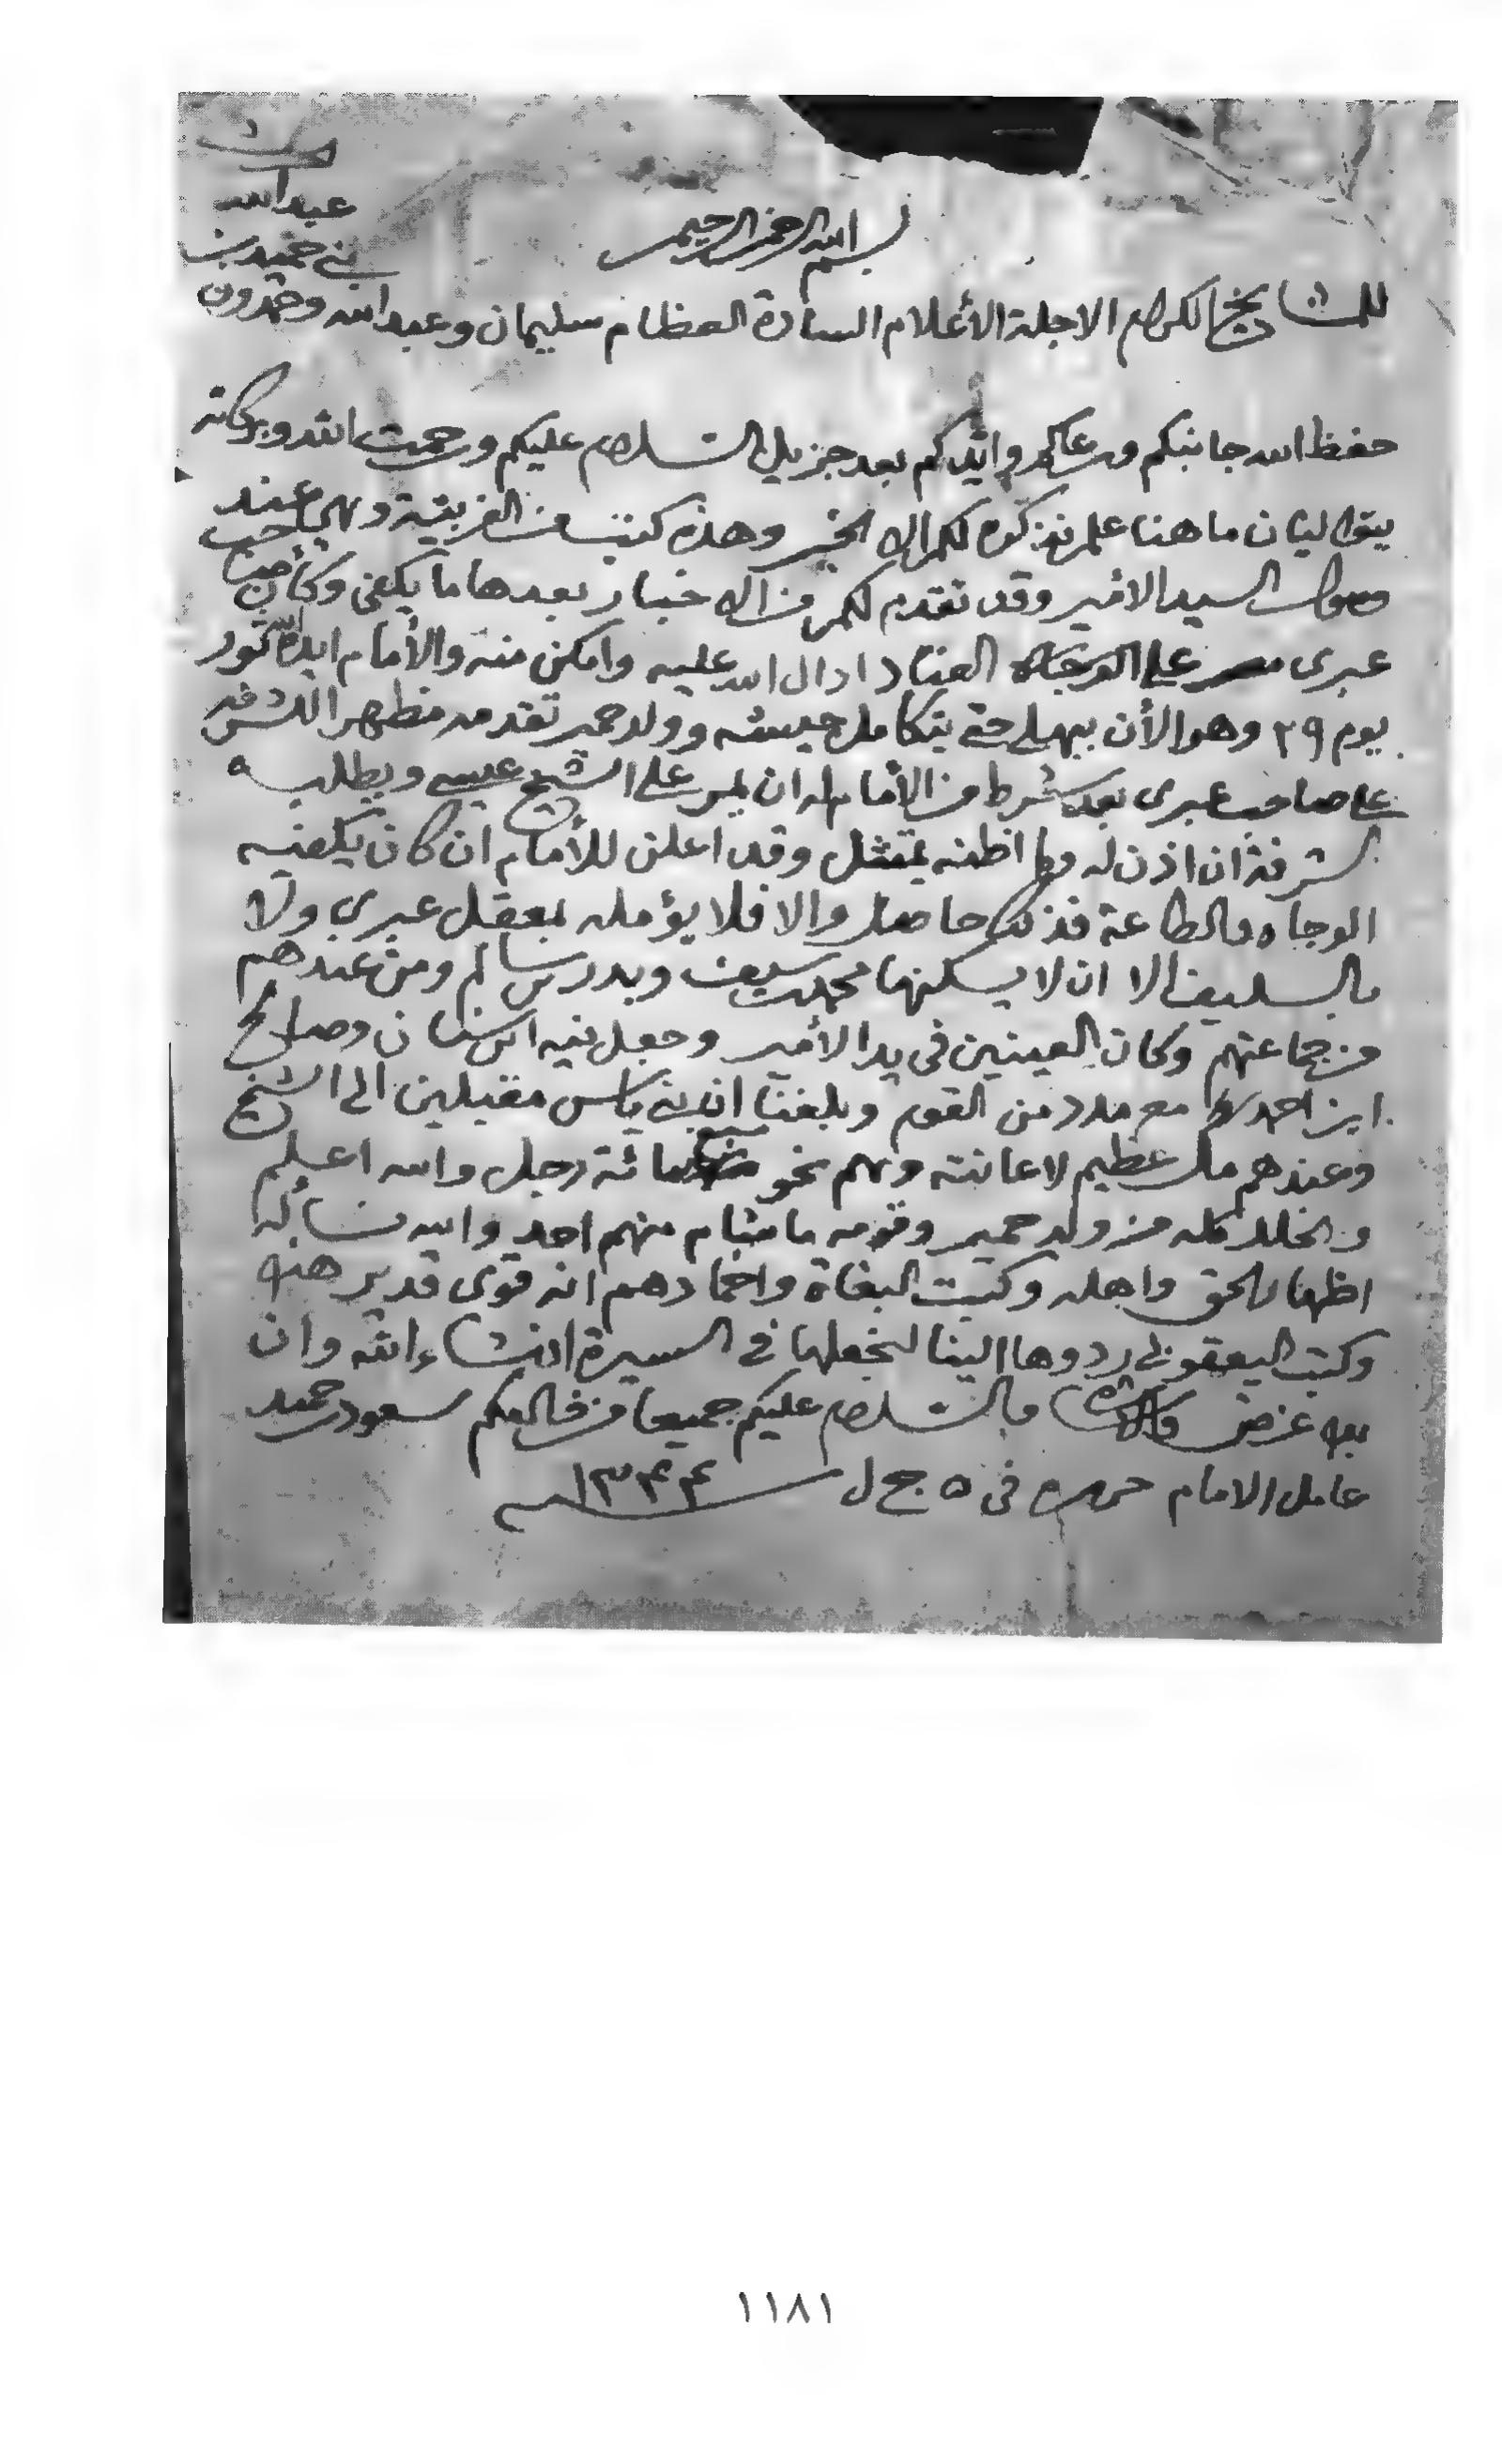 بسم الله الرحمن الرحيم
للمشايخ الكرام الاجلة الأعلام السادة العظام سليمان وعبدالله وحمدون
بني حميد بن
عبدالله
حفظ الله جانبكم ورعاكم وايدكم بعد جزيل السلام عليكم ورحمت الله وبركاته
ما هنا علم نذكره لكم الا الخير وهذه كتب من الغربية وهي عند
السيد الامير وقد تقدم لكم من الاخبار بعدها ما يكفي وكان صاحب
عبري على العناد ادال الله عليه وامكن منه والأمام ايده الله
يوم ٢٩ وهو الأن ببهلى حتى يتكامل جيشه وولد حمير تقدمه
على صاحب عبري بعد شرط من الأمام له ان يمر على الشيخ عيسى ويطلبه
ان اذن له وما اظنه يمتثل وقد اعلن للأمام ان كان يكفيه
الوجاه والطاعة فذلك حاصل والا فلا يؤمله بمعقل عبري ولا
بالسليف الا ان لا يسكنها محمد بن سيف وبدر بن سالم ومن عندهم
من جماعتهم وكان العينين في يد الأمير وجعل فيه ابن سنان وصالح
ابن احمد مع مدد من القوم وبلغنا ان بني ياس مقبلين الى الشيخ
وعندهم مال عظيم لاعانته وهم نحو مائة رجل والله اعلم
والخلل كله من ولد حمير وقومه ما منهم احد والله نسأله
اظهار الحق واهله وكبت البغاة واخمادهم انه قوي قدير هذه
وكتب اليعقوبي ردوها الينا لنجعلها في السيرة انشاء الله وان
بدا غرض والسلام عليكم جميعا من سعود بن حميد
عامل الامام في ٥ ج ل ١٣٤٤
١١٨١